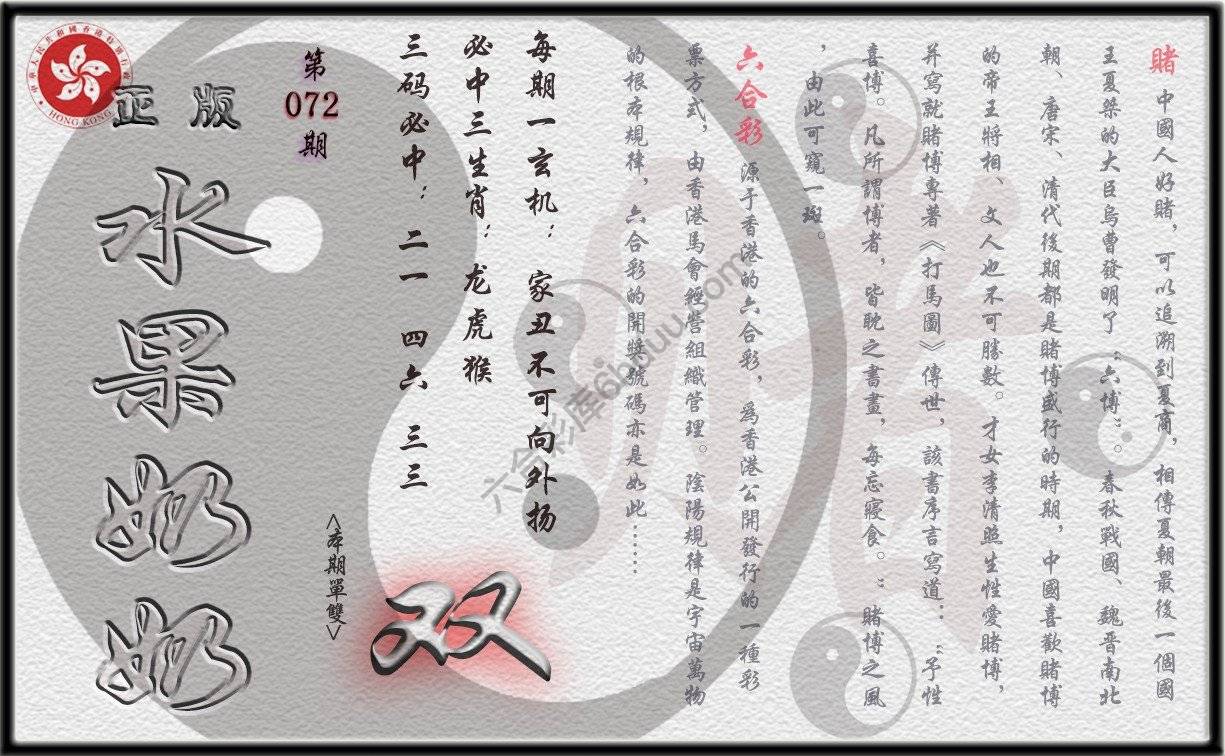 賭 中國人好賭，可以追溯到夏商，相傳夏朝最後一個國
王夏桀的大臣烏曹發明了“六博”。春秋戰國、魏晋南北
朝、唐宋、清代後期都是賭博盛行的時期，中國喜歡賭博
的帝王將相、文人也不可勝數。才女李清照生性愛賭博，
并寫就賭博專著《打馬圖》傳世，該書序言寫道：“予性
喜博。凡所謂博者，皆耽之書畫，每忘寢食。”賭博之風
，由此可窺一斑。
六合彩 源于香港的六合彩，為香港公開發行的一種彩
票方式，由香港馬會經營組織管理。陰陽規律是宇宙萬物
的根本規律，六合彩的開獎號碼亦是如此……
每期一玄机：家丑不可向外扬
必中三生肖：龙虎猴
三码必中：二一 四六 三三
双
<本期單雙>
第
072
期
正版
水果奶奶
HONG KONG
六合彩库6huuu.com
賭